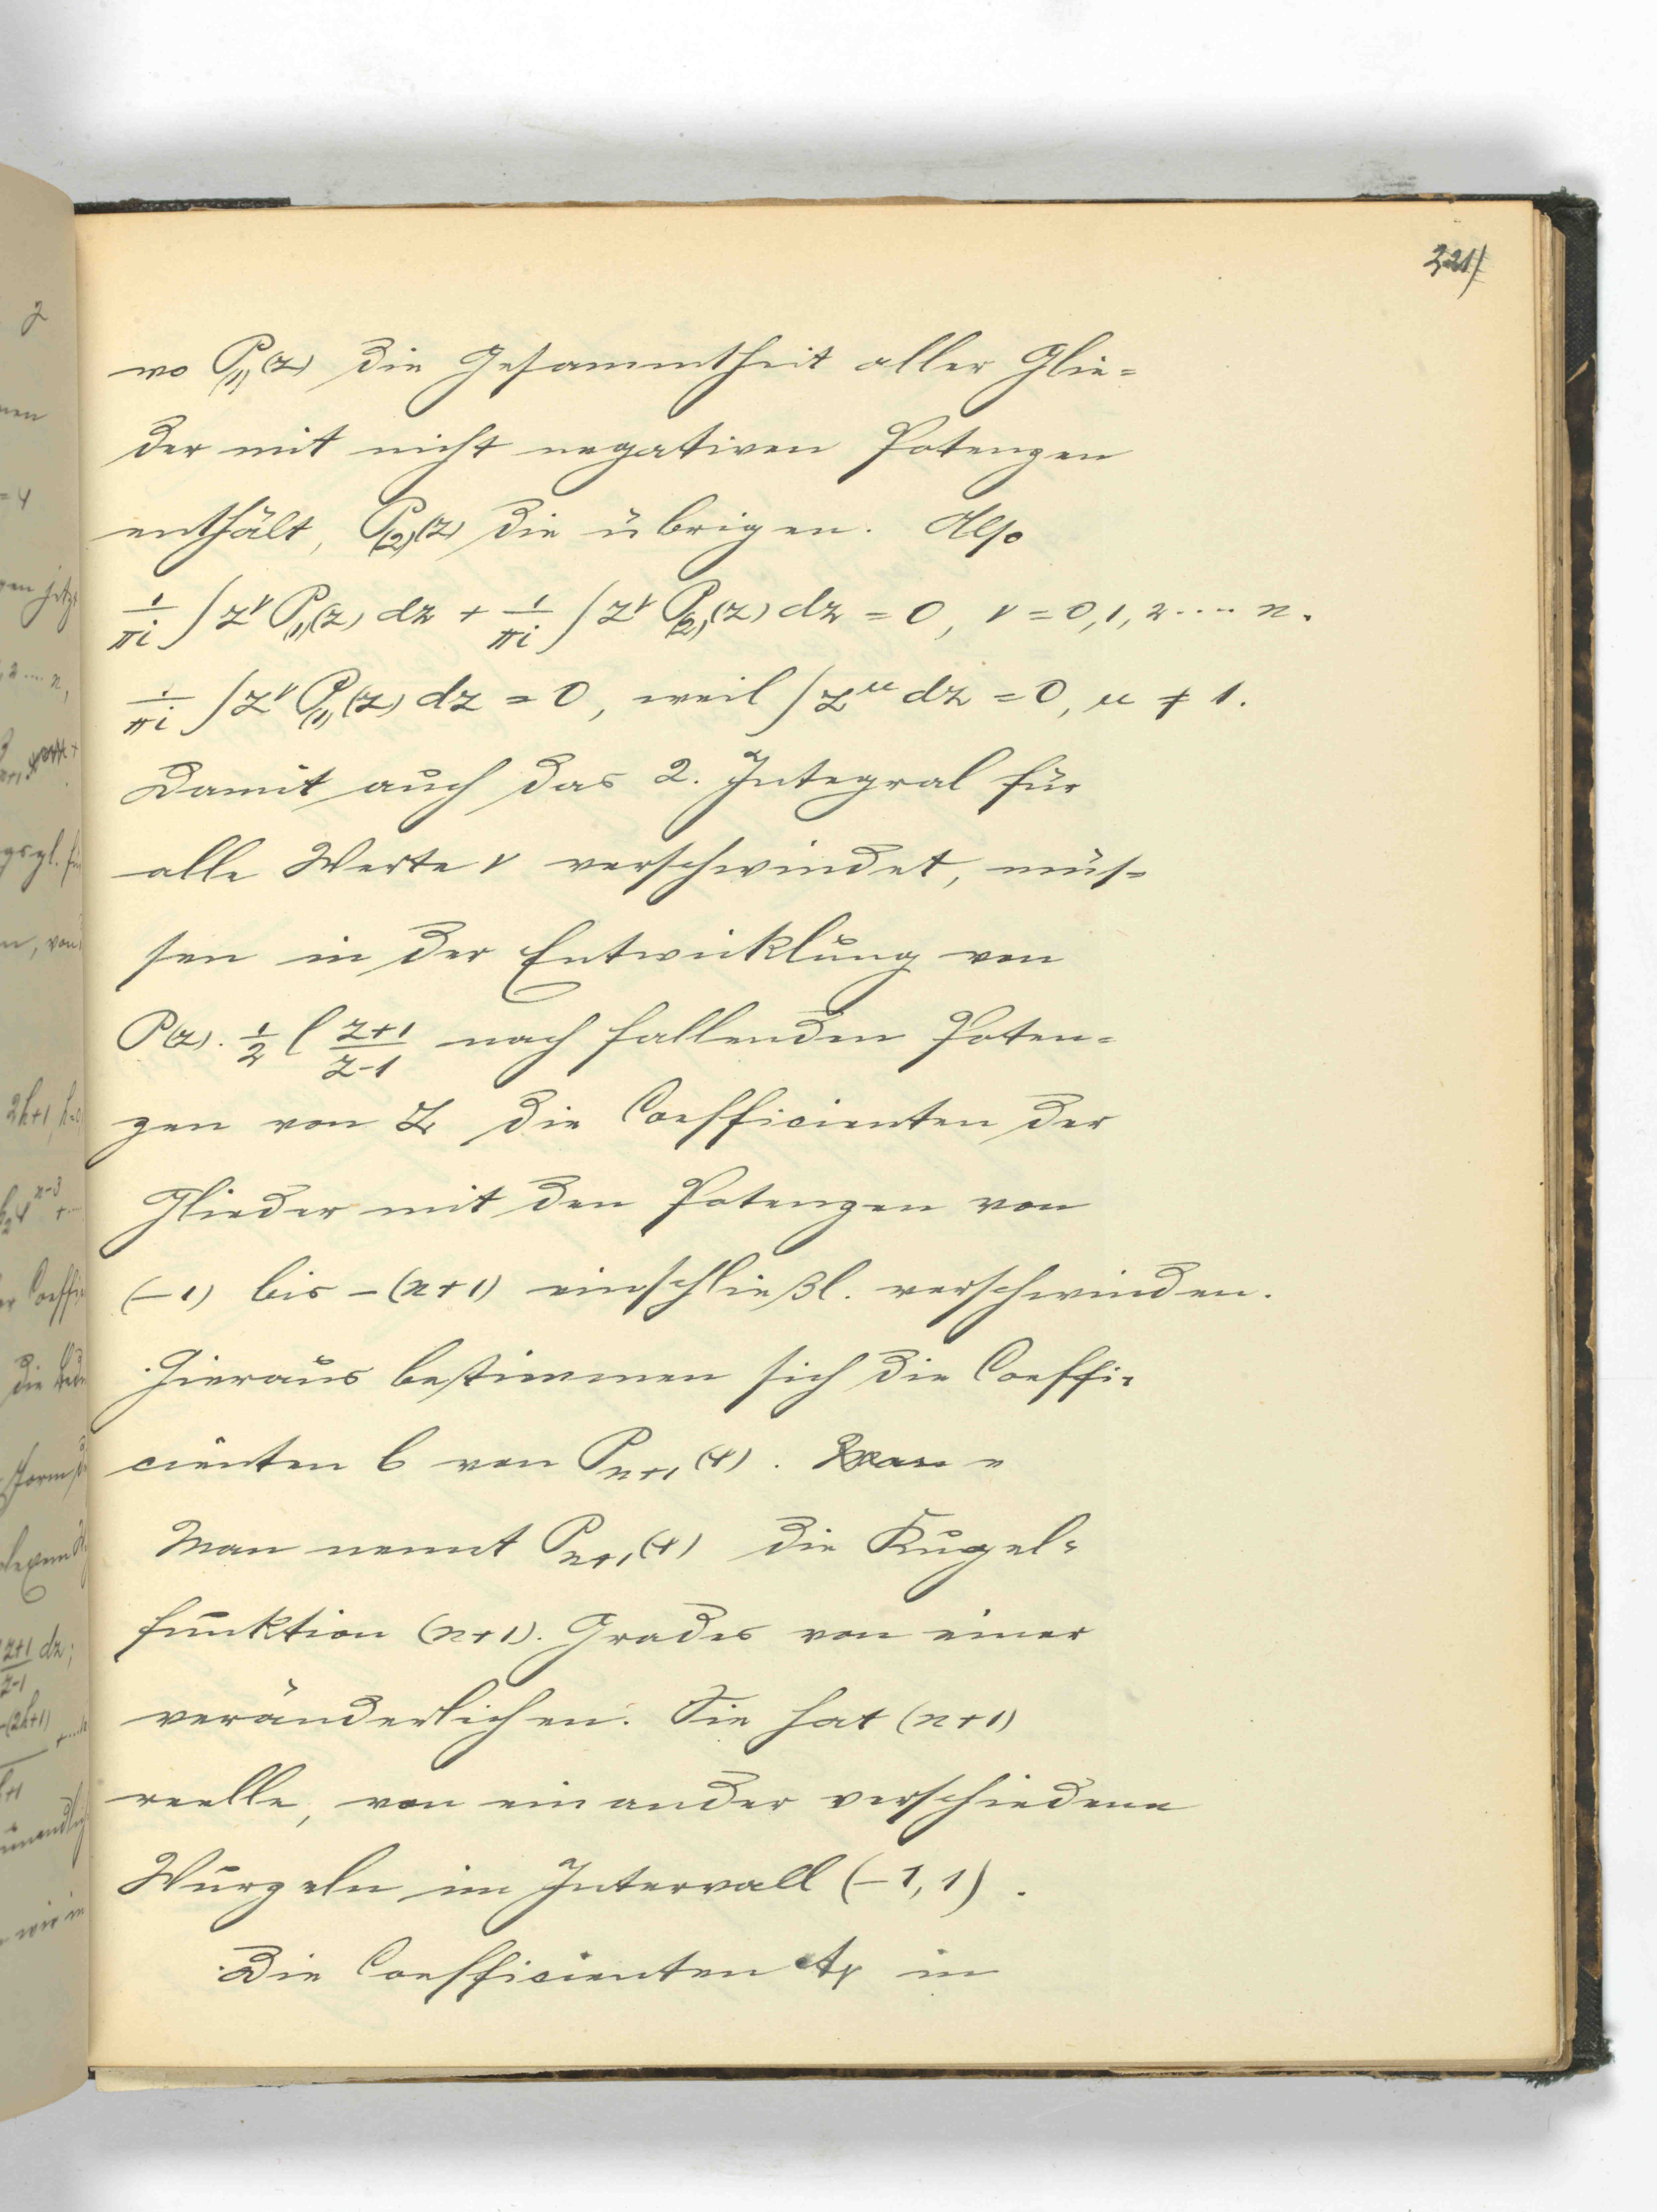 321)
wo P₍₁₎(z) die Gesammtheit aller Glie=
der mit nicht negativen Potenzen
enthält, P₍₂₎(z) die übrigen. Also
1/πi ∫ z^ν P₍₁₎(z) dz + 1/πi ∫ z^ν P₍₂₎(z) dz = 0, ν = 0, 1, 2 .... n.
1/πi ∫ z^ν P₍₁₎(z) dz = 0, weil ∫ z^μ dz = 0, μ ≠ 1.
Damit auch das 2. Integral für
alle Werte ν verschwindet, müs=
sen in der Entwicklung von
P(z) . 1/2 l (z+1)/(z-1) nach fallenden Poten=
zen von z die Coefficienten der
Glieder mit den Potenzen von
(-1) bis -(n+1) einschließl. verschwinden.
Hieraus bestimmen sich die Coeffi=
cienten b von P_{n+1}(x).
Man nennt P_{n+1}(x) die Kugel=
funktion (n+1). Grades von einer
veränderlichen. Sie hat (n+1)
reelle, von einander verschiedene
Wurzeln im Intervall (-1, 1).
Die Coefficienten A_ν in